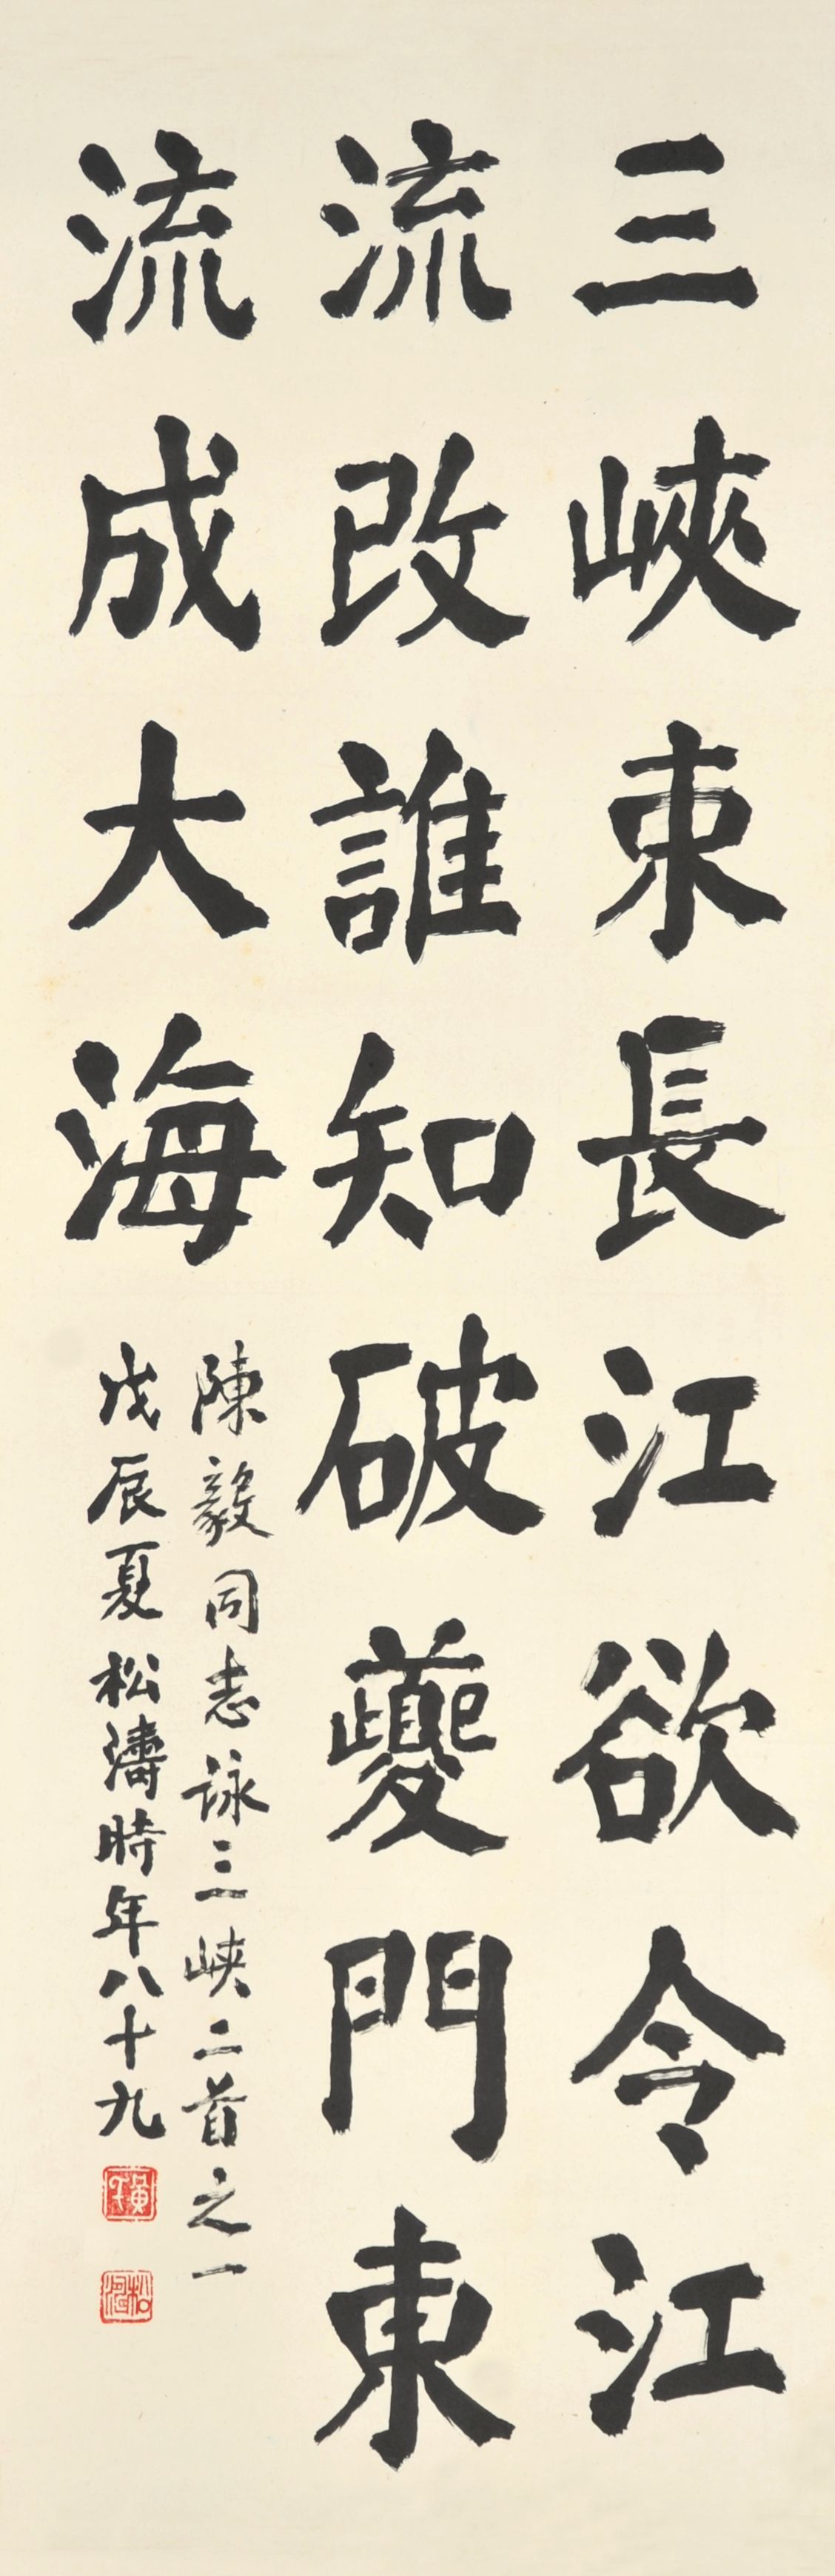 三峽束長江欲令江
流改誰知破夔門東
流成大海
陳毅同志詠三峽二首之一
戊辰夏松濤時年八十九